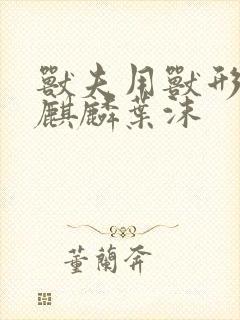 獸夫用獸形
麒麟葉沫
董蘭奔